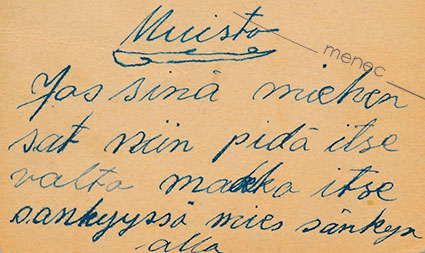 Muisto
menec
Jos sinä miehen
sat niin pidä itse
valta makka itse
sänkyyssä mies sänkyn
alla